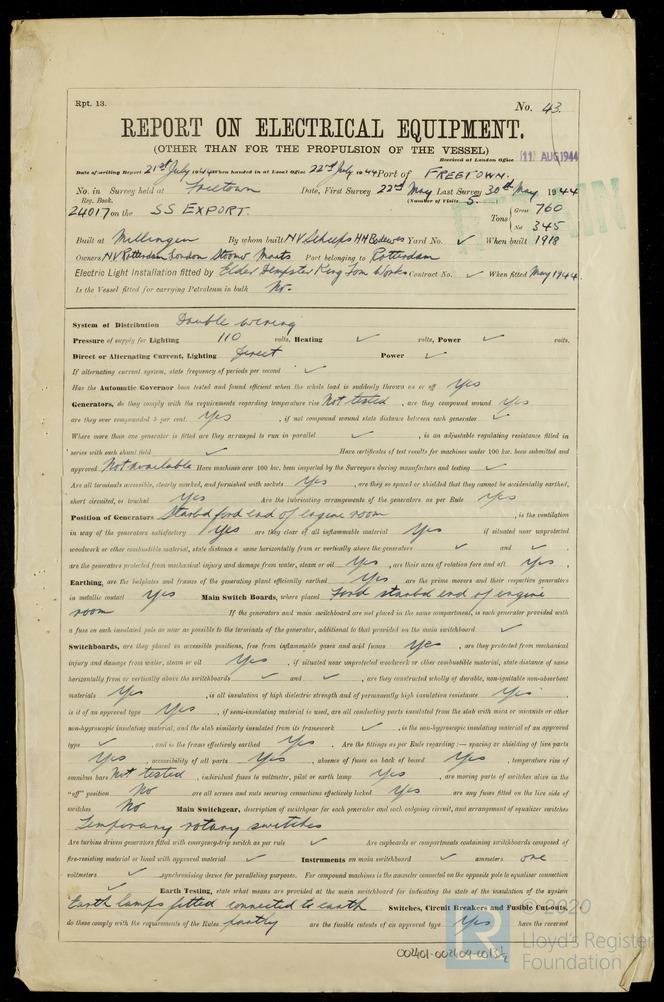 Rpt. 13.
No. 43.
REPORT ON ELECTRICAL EQUIPMENT.
(OTHER THAN FOR THE PROPULSION OF THE VESSEL)
Received at London Office 11 AUG 1944
Date of writing Report 21st July 1944 When handed in at Local Office 22nd July 1944 Port of FREETOWN.
No. in Survey held at Freetown Date, First Survey 22nd May Last Survey 30th May 1944
Reg. Book. (Number of Visits 5.)
24017 on the SS EXPORT. Tons { Gross 760
Net 345
Built at Millingen By whom built NV Scheeps HH Bodewes Yard No. ✓ When built 1918
Owners NV Rotterdam London Stoomv Maats Port belonging to Rotterdam
Electric Light Installation fitted by Elder Dempster King Tom Works Contract No. ✓ When fitted May 1944.
Is the Vessel fitted for carrying Petroleum in bulk No.
System of Distribution Double wiring
Pressure of supply for Lighting 110 volts, Heating ✓ volts, Power ✓ volts.
Direct or Alternating Current, Lighting Direct Power ✓
If alternating current system, state frequency of periods per second ✓
Has the Automatic Governor been tested and found efficient when the whole load is suddenly thrown on or off Yes
Generators, do they comply with the requirements regarding temperature rise Not tested, are they compound wound Yes
are they over compounded 5 per cent. Yes, if not compound wound state distance between each generator ✓
Where more than one generator is fitted are they arranged to run in parallel ✓, is an adjustable regulating resistance fitted in
series with each shunt field ✓ Have certificates of test results for machines under 100 kw. been submitted and
approved Not available Have machines over 100 kw. been inspected by the Surveyors during manufacture and testing ✓
Are all terminals accessible, clearly marked, and furnished with sockets Yes, are they so spaced or shielded that they cannot be accidentally earthed,
short circuited, or touched Yes Are the lubricating arrangements of the generators as per Rule Yes
Position of Generators Starbd ford end of engine room, is the ventilation
in way of the generators satisfactory Yes are they clear of all inflammable material Yes if situated near unprotected
woodwork or other combustible material, state distance of same horizontally from or vertically above the generators ✓ and ✓,
are the generators protected from mechanical injury and damage from water, steam or oil Yes, are their axes of rotation fore and aft Yes,
Earthing, are the bedplates and frames of the generating plant efficiently earthed Yes are the prime movers and their respective generators
in metallic contact Yes Main Switch Boards, where placed Ford starbd end of engine
room If the generators and main switchboard are not placed in the same compartment, is each generator provided with
a fuse on each insulated pole as near as possible to the terminals of the generator, additional to that provided on the main switchboard ✓
Switchboards, are they placed in accessible positions, free from inflammable gases and acid fumes Yes, are they protected from mechanical
injury and damage from water, steam or oil Yes, if situated near unprotected woodwork or other combustible material, state distance of same
horizontally from or vertically above the switchboards ✓ and ✓, are they constructed wholly of durable, non-ignitable non-absorbent
materials Yes, is all insulation of high dielectric strength and of permanently high insulation resistance Yes,
is it of an approved type Yes, if semi-insulating material is used, are all conducting parts insulated from the slab with mica or micanite or other
non-hygroscopic insulating material, and the slab similarly insulated from its framework ✓, is the non-hygroscopic insulating material of an approved
type ✓, and is the frame effectively earthed Yes. Are the fittings as per Rule regarding :— spacing or shielding of live parts
Yes, accessibility of all parts Yes, absence of fuses on back of board Yes, temperature rise of
omnibus bars Not tested, individual fuses to voltmeter, pilot or earth lamp Yes, are moving parts of switches alive in the
"off" position No are all screws and nuts securing connections effectively locked Yes are any fuses fitted on the live side of
switches No Main Switchgear, description of switchgear for each generator and each outgoing circuit, and arrangement of equalizer switches
Temporary rotary switches
Are turbine driven generators fitted with emergency-trip switch as per rule ✓ Are cupboards or compartments containing switchboards composed of
fire-resisting material or lined with approved material ✓ Instruments on main switchboard ✓ ammeters one
voltmeters ✓ synchronising device for paralleling purposes. For compound machines is the ammeter connected on the opposite pole to equaliser connection
✓ Earth Testing, state what means are provided at the main switchboard for indicating the state of the insulation of the system
Earth lamps fitted connected to earth Switches, Circuit Breakers and Fusible Cut-outs,
do these comply with the requirements of the Rules partly are the fusible cutouts of an approved type Yes have the reversed
002401-002409-0013½
© 2020
Lloyd's Register
Foundation